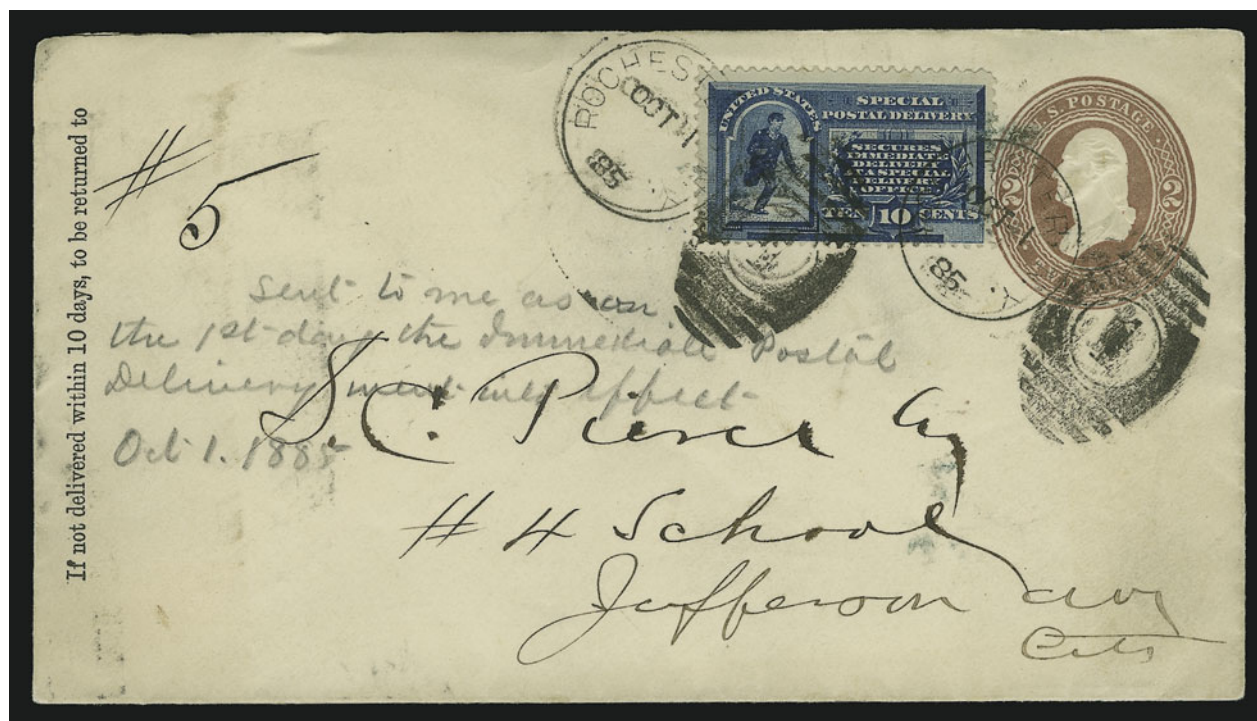 If not delivered within 10 days, to be returned to
# 5
ROCHEST
OCT 1
85
UNITED STATES
SPECIAL
POSTAL DELIVERY
SECURES
IMMEDIATE
DELIVERY
AT A SPECIAL
DELIVERY
OFFICE
TEN 10 CENTS
U.S. POSTAGE
2 2
OCT 1
85
sent to me as on
the 1st day the Immediate Postal
Delivery went into effect
Oct 1. 1885
S. C. Pierce Esq
# 4 School
Jefferson Ave
City